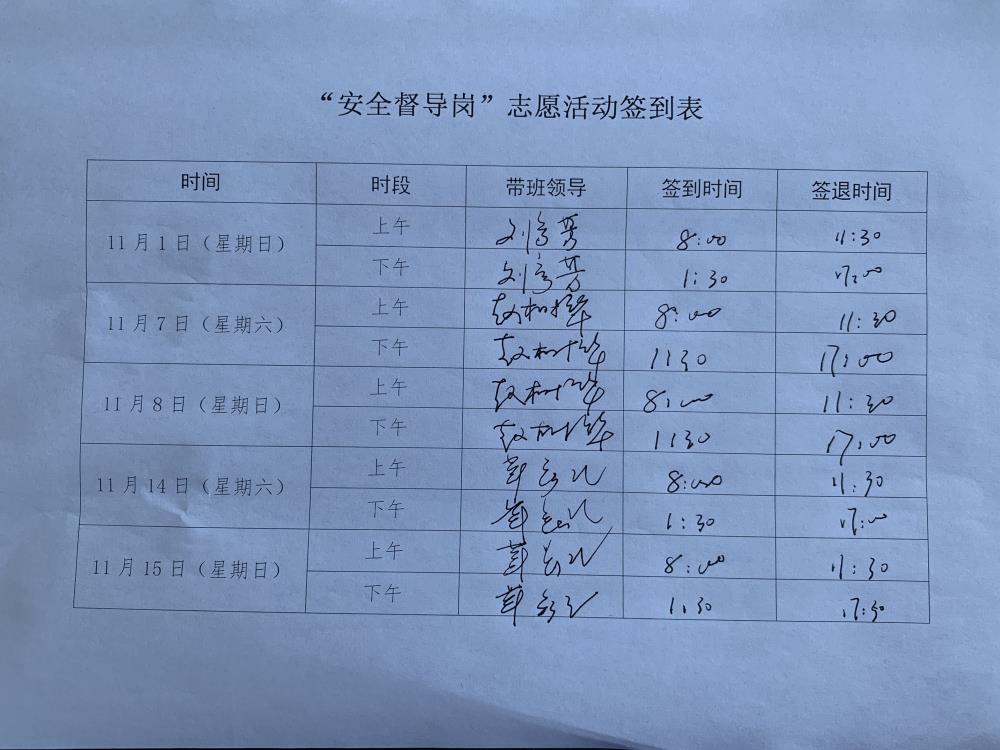 “安全督导岗”志愿活动签到表
时间 时段 带班领导 签到时间 签退时间
11月1日（星期日） 上午 8:00 11:30
下午 1:30 17:00
11月7日（星期六） 上午 8:00 11:30
下午 1130 17:00
11月8日（星期日） 上午 8:00 11:30
下午 1130 17:00
11月14日（星期六） 上午 8:00 11:30
下午 1:30 17:00
11月15日（星期日） 上午 8:00 11:30
下午 1:30 17:30